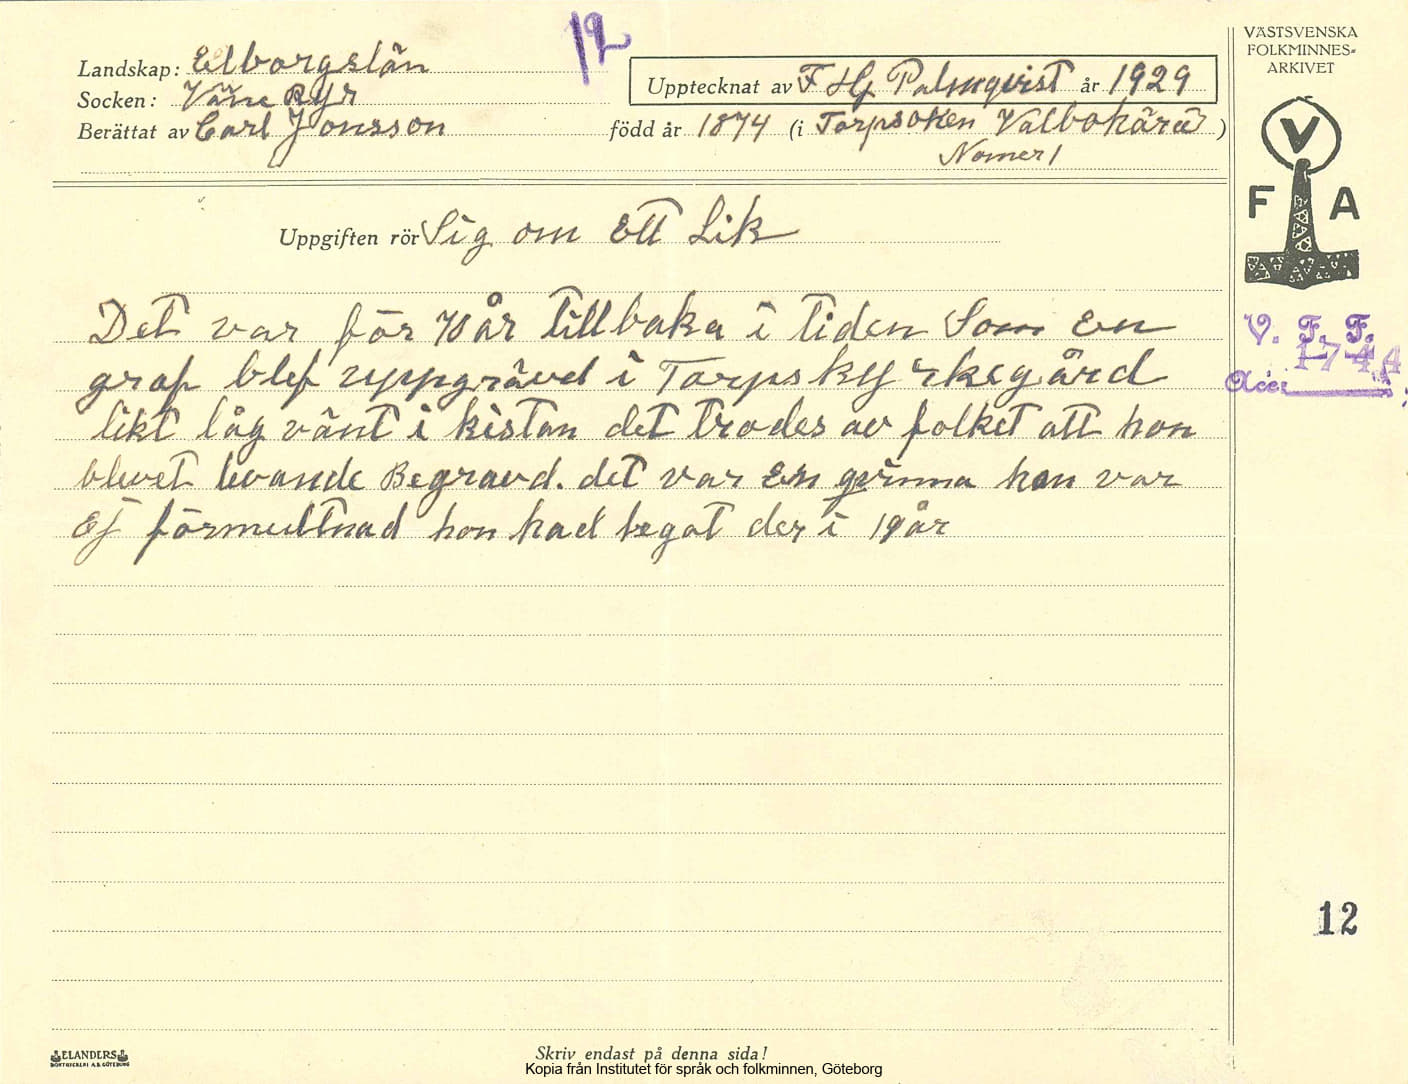 12
VÄSTSVENSKA
FOLKMINNES-
ARKIVET
Landskap: Elborgslän
Upptecknat av F Hj Palmqvist år 1929
Socken: Väne Ryr
Berättat av Carl Jonsson född år 1874 (i Torpsoken Valbohärad)
Nomer 1
V
F A
Uppgiften rör Sig om Ett Lik
Det var för 70 år tillbaka i tiden Som En
graf blef uppgrävd i Torps kyrkegård
likt låg vänt i kistan det trodes av folket att hon
blevet levande Begravd. det var En qvinna hon var
Ej förmultnad hon had legat der i 19 år
V. F. F.
1744
Acc.
12
ELANDERS
BOKTRYCKERI A.B. GÖTEBORG
Skriv endast på denna sida!
Kopia från Institutet för språk och folkminnen, Göteborg